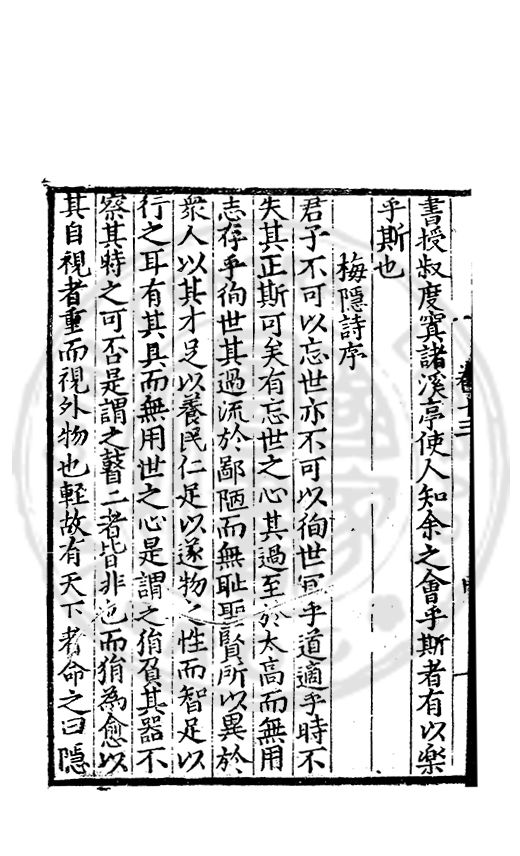 書授叔度寘諸溪亭使人知余之會乎斯者有以樂
乎斯也
梅隱詩序
君子不可以忘世亦不可以徇世宜乎道適乎時不
失其正斯可矣有忘世之心其過至於太高而無用
志存乎徇世其過流於鄙陋而無耻聖賢所以異於
衆人以其才足以養民仁足以遂物之性而智足以
行之耳有其具而無用世之心是謂之狷負其器不
察其時之可否是謂之瞽二者皆非也而狷為愈以
其自視者重而視外物也輕故有天下者命之曰隱
卷十三